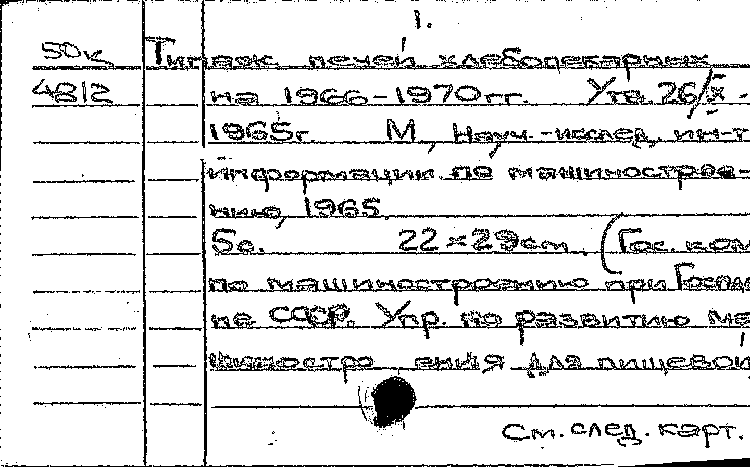 1.
50к Типаж печей хлебопекарных
4812 на 1966-1970гг. Утв. 26/X-
1965г. М., Науч.-исслед. ин-т
информации по машинострое-
нию, 1965.
5с. 22×29см. (Гос. ком
по машиностроению при Госпла
не СССР. Упр. по развитию ма
шиностро ения для пищевой
См. след. карт.